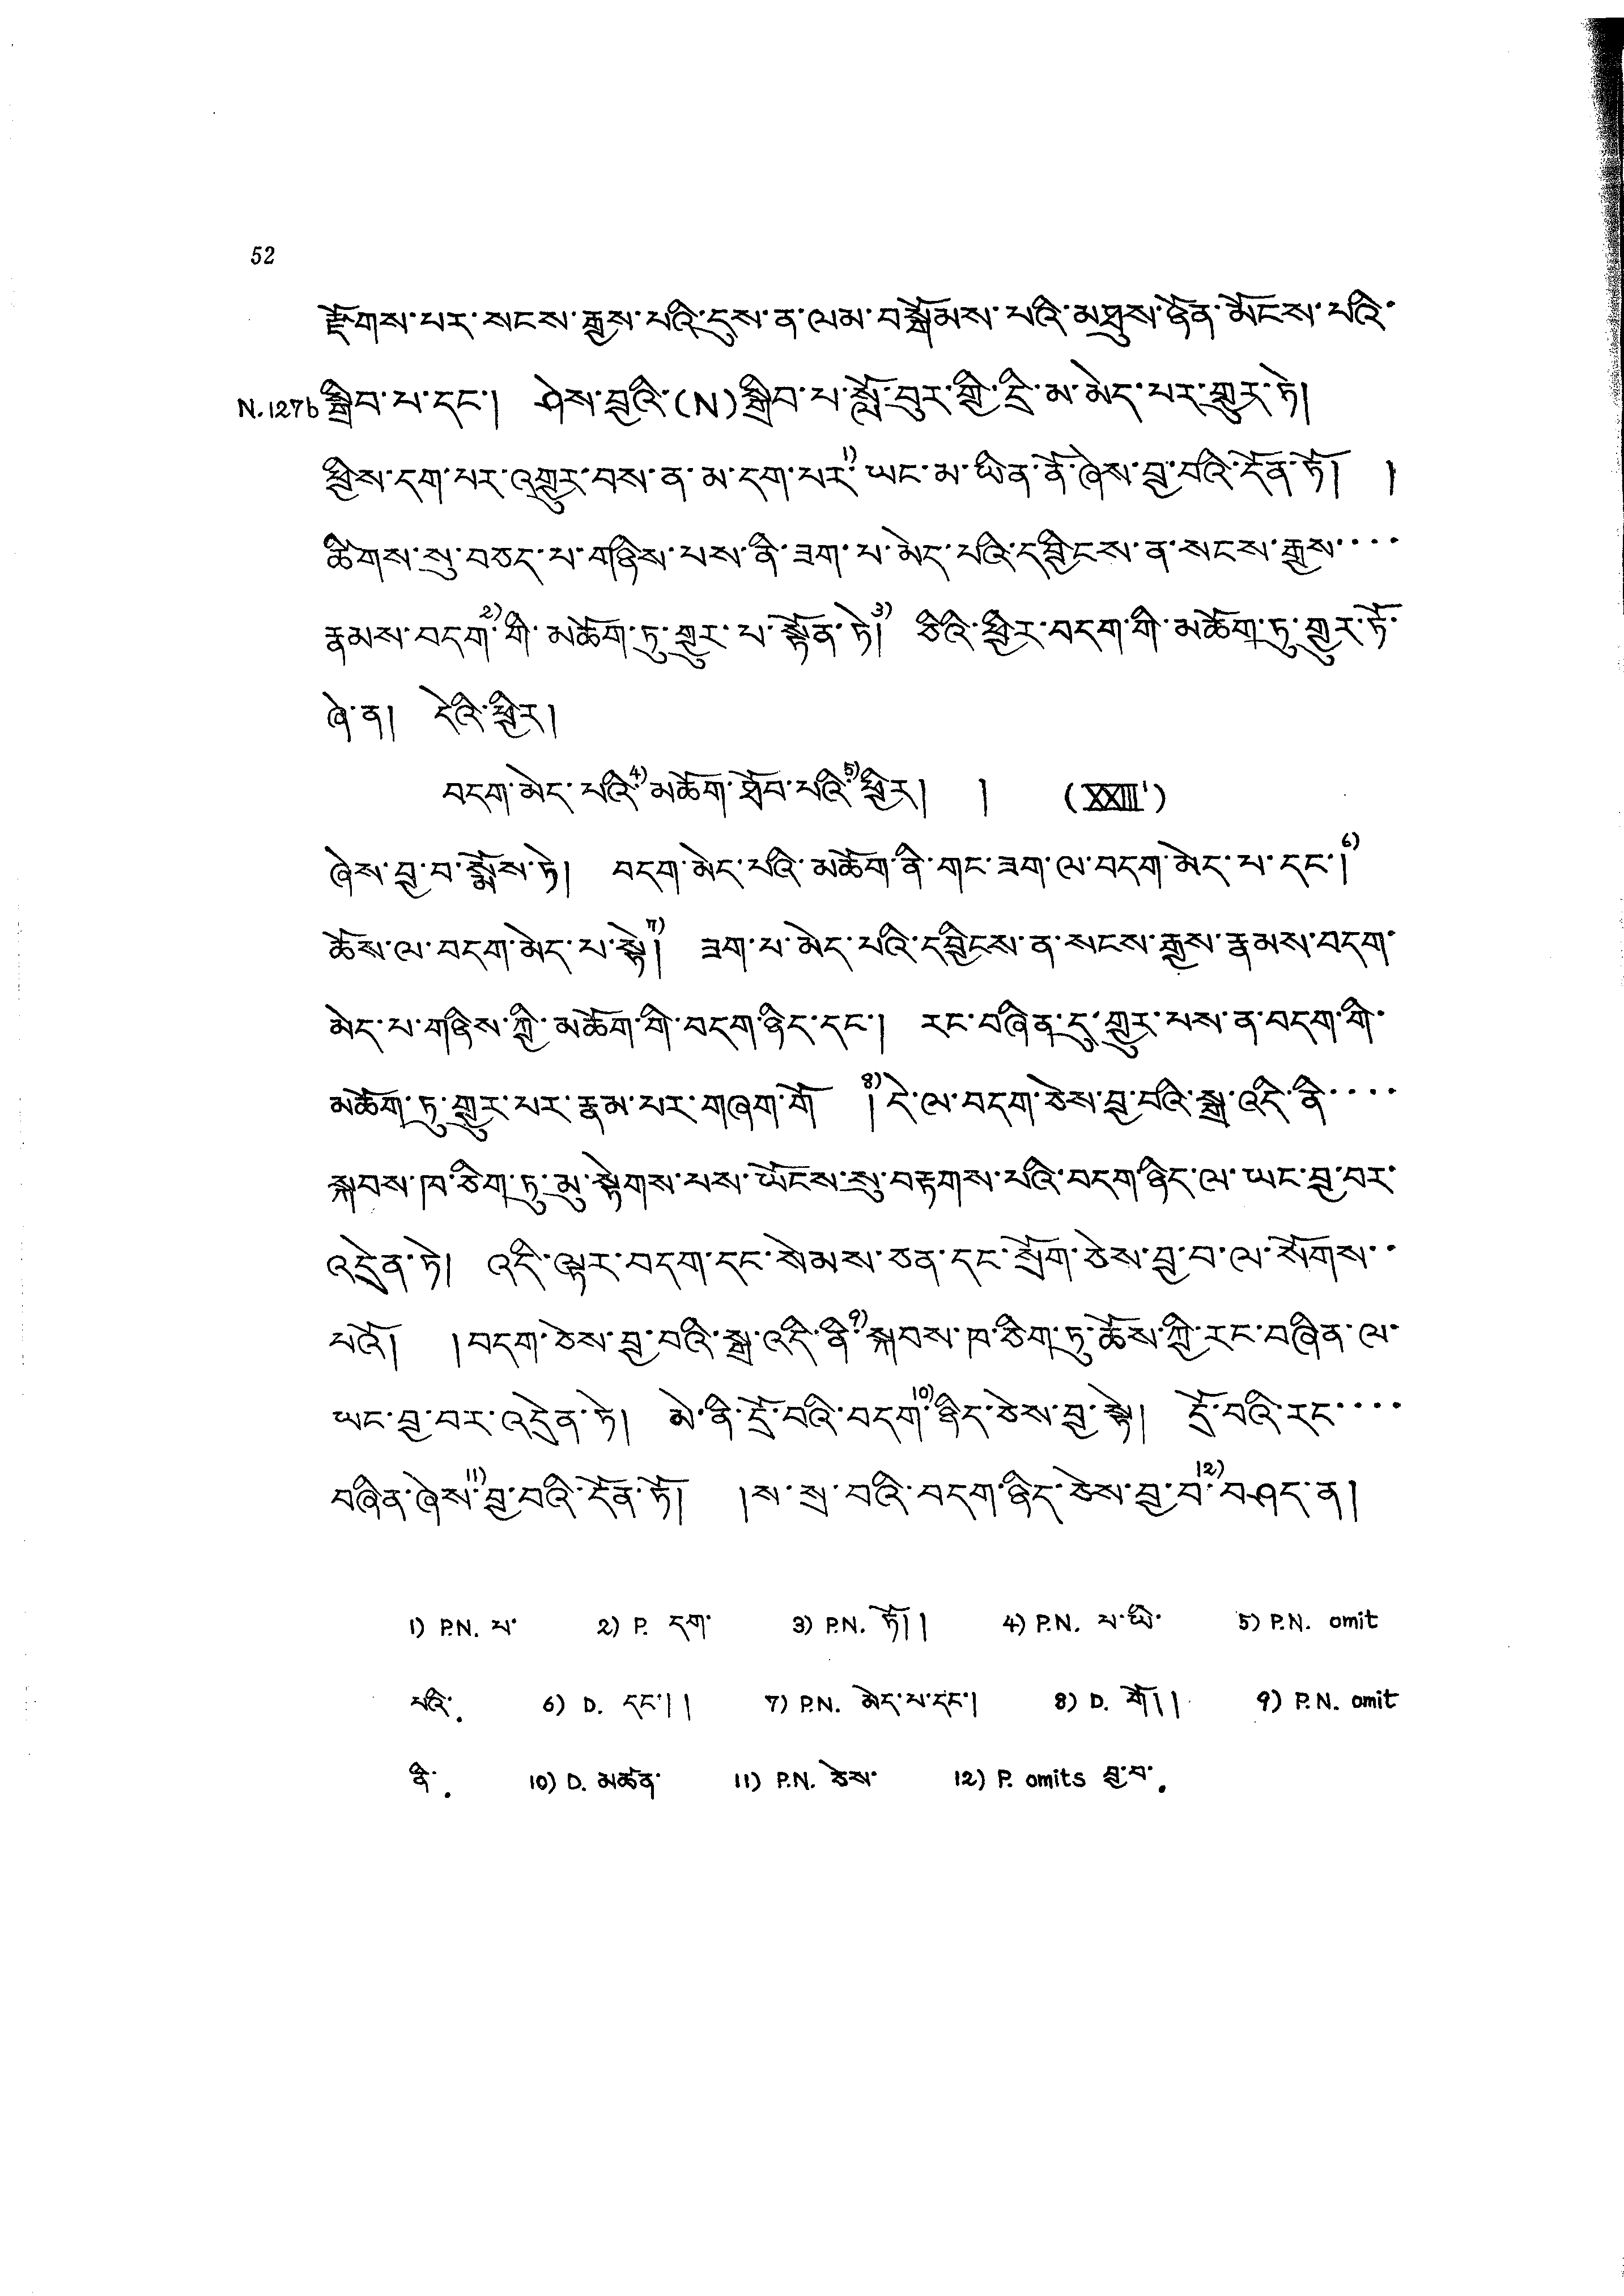 52
རྫོགས་པར་སངས་རྒྱས་པའི་དུས་ན་ལམ་བསྒོམས་པའི་མཐུས་ཉོན་མོངས་པའི་
N.127b སྒྲིབ་པ་དང་། ཤེས་བྱའི་(N)སྒྲིབ་པ་གློ་བུར་གྱི་དྲི་མ་མེད་པར་གྱུར་ཏེ།
ཕྱིས་དག་པར་འགྱུར་བས་ན་མ་དག་པར་1)ཡང་མ་ཡིན་ནོ་ཞེས་བྱ་བའི་དོན་ཏོ། །
ཚིགས་སུ་བཅད་པ་གཉིས་པས་ནི་ཟག་པ་མེད་པའི་དབྱིངས་ན་སངས་རྒྱས་....
རྣམས་བདག་2)གི་མཆོག་ཏུ་གྱུར་པ་སྟོན་ཏེ།3) ཅིའི་ཕྱིར་བདག་གི་མཆོག་ཏུ་གྱུར་ཏོ་
ཞེ་ན། དེའི་ཕྱིར།
བདག་མེད་པའི་4)མཆོག་ཐོབ་པའི་5)ཕྱིར། ། (XXIII')
ཞེས་བྱ་བ་སྨོས་ཏེ། བདག་མེད་པའི་མཆོག་ནི་གང་ཟག་ལ་བདག་མེད་པ་དང་།6)
ཆོས་ལ་བདག་མེད་པ་སྟེ།7) ཟག་པ་མེད་པའི་དབྱིངས་ན་སངས་རྒྱས་རྣམས་བདག་
མེད་པ་གཉིས་ཀྱི་མཆོག་གི་བདག་ཉིད་དང་། རང་བཞིན་དུ་གྱུར་པས་ན་བདག་གི་
མཆོག་ཏུ་གྱུར་པར་རྣམ་པར་གཞག་གོ །8)དེ་ལ་བདག་ཅེས་བྱ་བའི་སྒྲ་འདི་ནི་....
སྐབས་ཁ་ཅིག་ཏུ་མུ་སྟེགས་པས་ཡོངས་སུ་བརྟགས་པའི་བདག་ཉིད་ལ་ཡང་བྱ་བར་
འདྲེན་ཏེ། འདི་ལྟར་བདག་དང་སེམས་ཅན་དང་སྲོག་ཅེས་བྱ་བ་ལ་སོགས་..
པའོ། །བདག་ཅེས་བྱ་བའི་སྒྲ་འདི་ནི་9)སྐབས་ཁ་ཅིག་ཏུ་ཆོས་ཀྱི་རང་བཞིན་ལ་
ཡང་བྱ་བར་འདྲེན་ཏེ། མེ་ནི་དྲོ་བའི་བདག་10)ཉིད་ཅེས་བྱ་སྟེ། དྲོ་བའི་རང་....
བཞིན་ཞེས་11)བྱ་བའི་དོན་ཏོ། །ས་སྲ་བའི་བདག་ཉིད་ཅེས་བྱ་བ་12)བཤད་ན།
1) P.N. པ་ 2) P. དག་ 3) P.N. ཏོ།། 4) P.N. པ་ཡི་ 5) P.N. omit
པའི་. 6) D. དང་།། 7) P.N. མེད་པ་དང་། 8) D. གོ།། 9) P.N. omit
ནི་. 10) D. མཚན་ 11) P.N. ཅེས་ 12) P. omits བྱ་བ་.